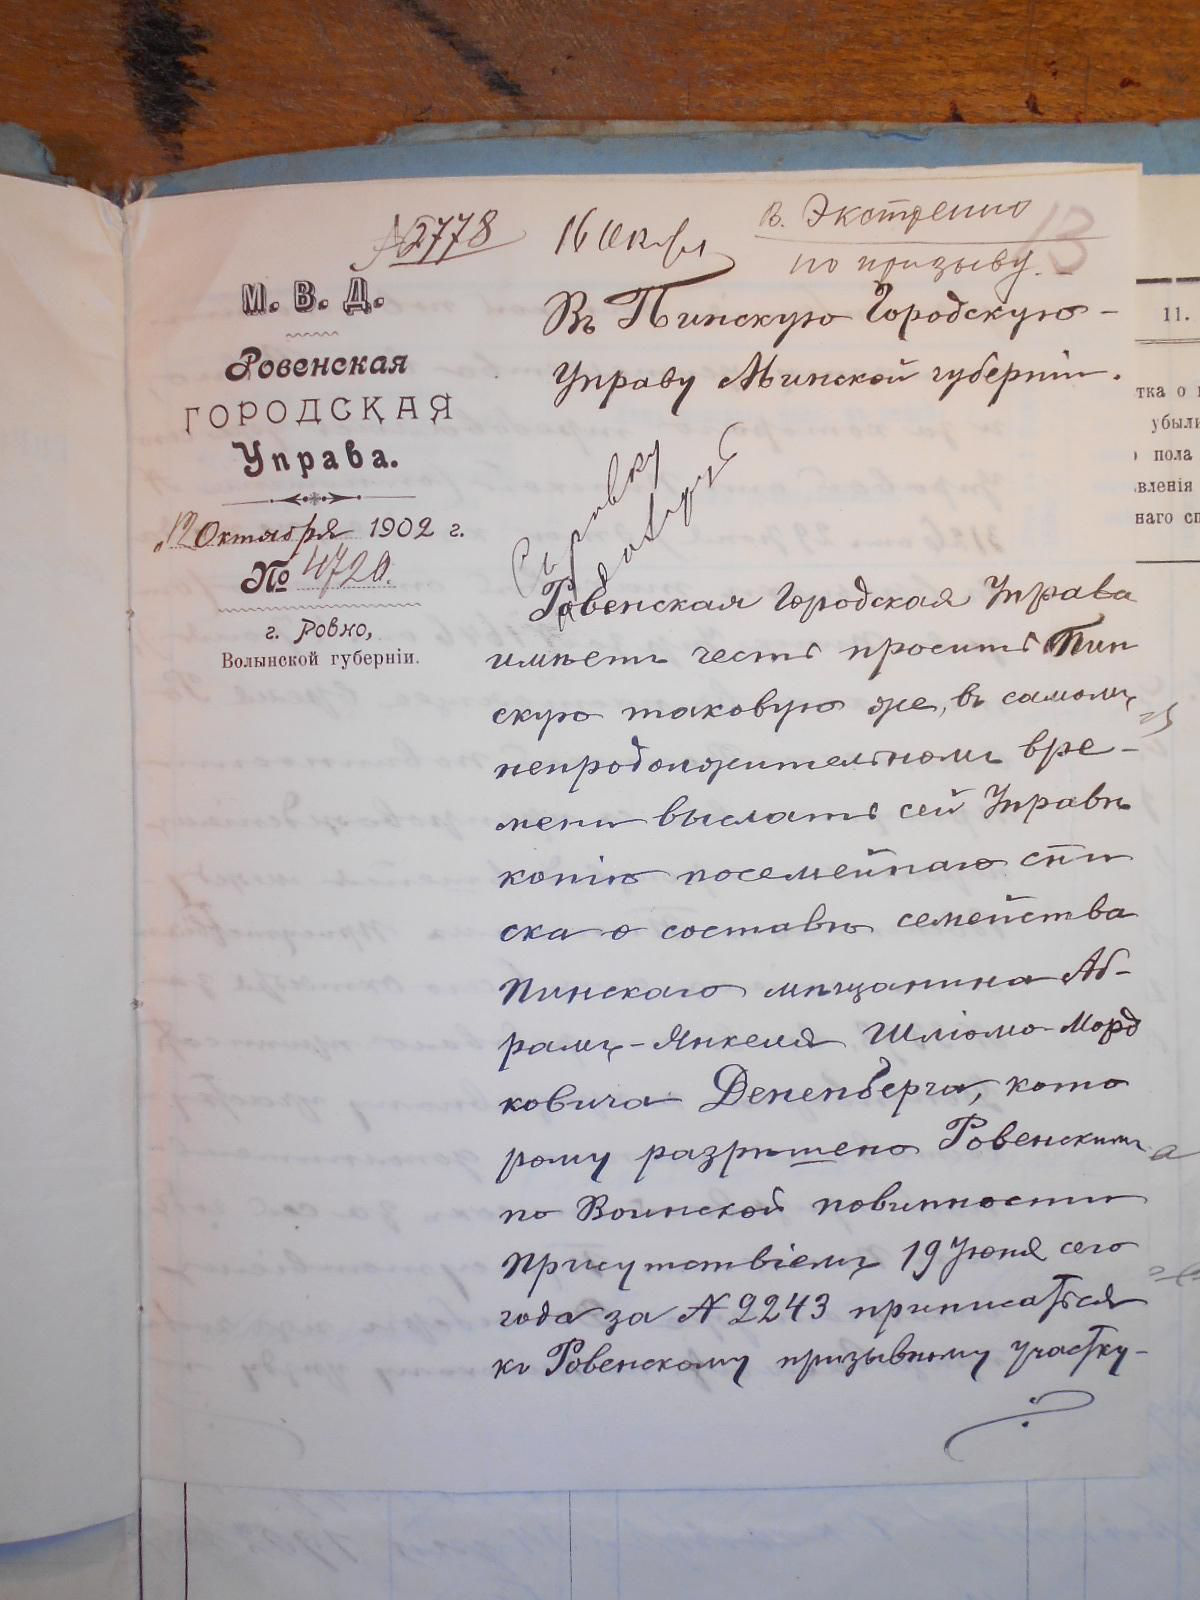 № 2778
16 Октбр
В. Экстренно
по призыву.
13
М. В. Д.
Ровенская
ГОРОДСКАЯ
Управа.
"12" Октября 1902 г.
№ 4720.
г. Ровно,
Волынской губерніи.
Въ Пинскую Городскую
Управу Минской губерніи.
Справку
Ровенская Городская Управа
имѣетъ честь просить Пин
скую таковую же, въ самомъ
непродолжительномъ вре-
мени выслать сей Управѣ
копію посемейнаго спи
ска о составѣ семейства
Пинскаго мѣщанина Аб-
рамъ-Янкеля Шліомо-Морд
ковича Дененберга, кото
рому разрѣшено Ровенскимъ
по Воинской повинности
Присутствіемъ 19 Іюня сего
года за № 2243 приписаться
къ Ровенскому призывному участку-
11.
тка о
убыли
пола
вленія
наго сп